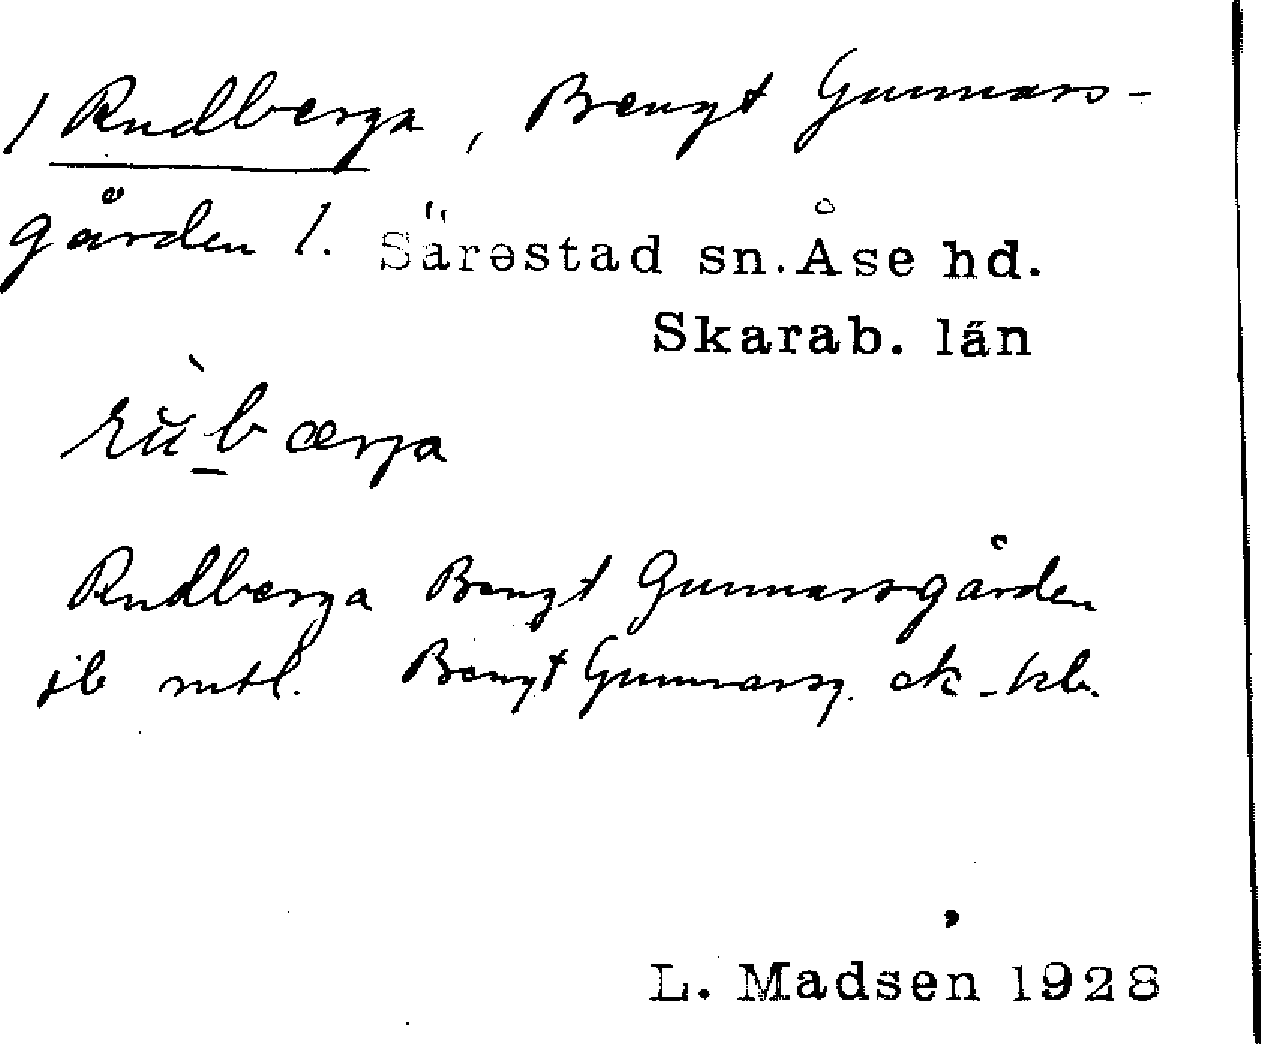 / Rudberga, Bengt Gunnars-
gården 1. Särestad sn. Åse hd.
Skarab. län
rŭ̀bærja
Rudberga Bengt Gunnarsgården
jb mtl. Bengt Gunnarsg. ek-kb.
L. Madsen 1928